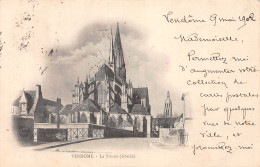 Vendôme 9 mai 1902
Mademoiselle,
Permettez moi
d'augmenter votre
Collection de
cartes postales
par quelques
vues de notre
Ville, et
promettez moi
VENDÔME. - La Trinité (Abside)